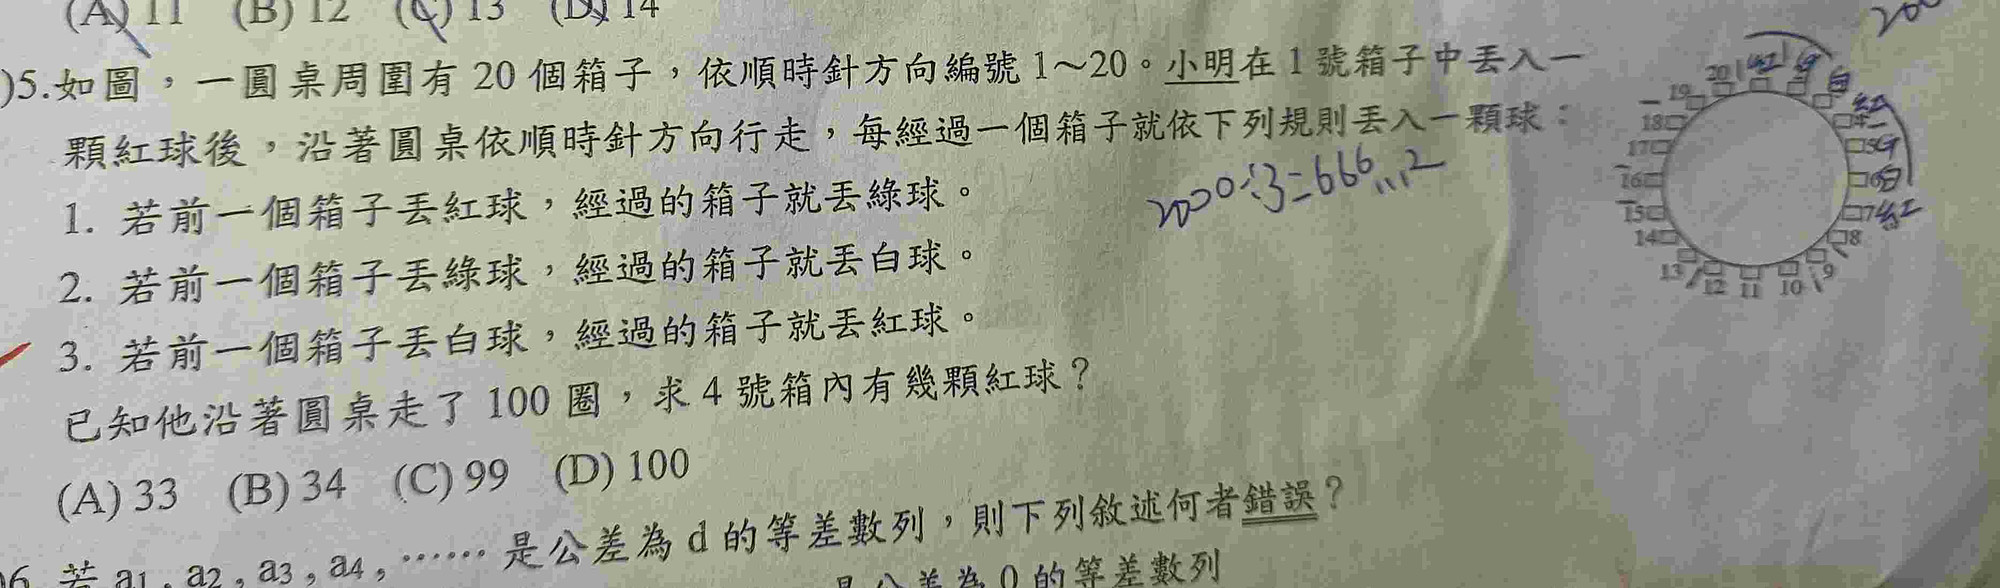 (A) 11 (B) 12 (C) 13 (D) 14
)5.如圖，一圓桌周圍有 20 個箱子，依順時針方向編號 1～20。小明在 1 號箱子中丟入一
顆紅球後，沿著圓桌依順時針方向行走，每經過一個箱子就依下列規則丟入一顆球：
1. 若前一個箱子丟紅球，經過的箱子就丟綠球。
2. 若前一個箱子丟綠球，經過的箱子就丟白球。
3. 若前一個箱子丟白球，經過的箱子就丟紅球。
已知他沿著圓桌走了 100 圈，求 4 號箱內有幾顆紅球？
(A) 33 (B) 34 (C) 99 (D) 100
2000÷3=666...2
200
20 1 紅 G 白
19 紅
18 4
17 5 G
16 6 白
15 7 紅
14 8
13 12 11 10 9
)6. 若 a1，a2，a3，a4，……是公差為 d 的等差數列，則下列敘述何者錯誤？
是公差為 0 的等差數列